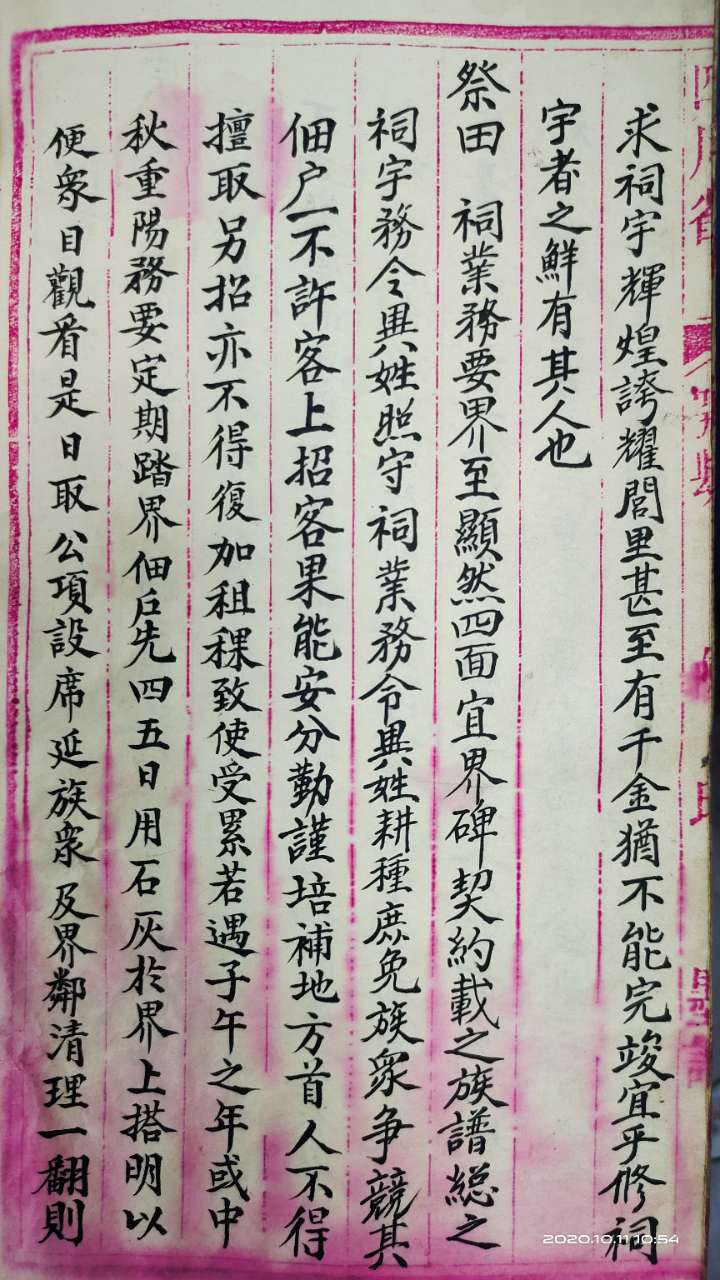 求祠宇輝煌誇耀閭里甚至有千金猶不能完竣宜乎修祠
宇者之鮮有其人也
祭田　祠業務要界至顯然四面宜界碑契約載之族譜總之
祠宇務令異姓照守祠業務令異姓耕種庶免族衆争競其
佃户一不許客上招客果能安分勤謹培補地方首人不得
擅取另招亦不得復加租稞致使受累若遇子午之年或中
秋重陽務要定期踏界佃戶先四五日用石灰於界上搭明以
便衆目觀看是日取公項設席延族衆及界鄰清理一翻則
2020.10.11 10:54